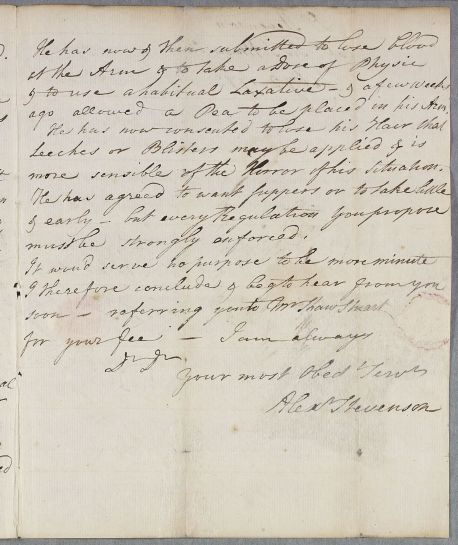 He has now & then submitted to lose blood
at the Arm & to take a Dose of Physic
& to use a habitual Laxative - & a few weeks
ago allowed a Pea to be placed in his Arm
He has now consented to lose his Hair that
Leeches or Blisters may be applied & is
more sensible of the Horror of his Situation.
He has agreed to want suppers or to take little
& early - but every Regulation you propose
must be strongly enforced.
It woud serve no purpose to be more minute
I therefore conclude & beg to hear from you
soon - referring you to Mr Shaw Stuart
for your fee - I am always
Dr Dr
your most Obedt Servt
Alexr Stevenson